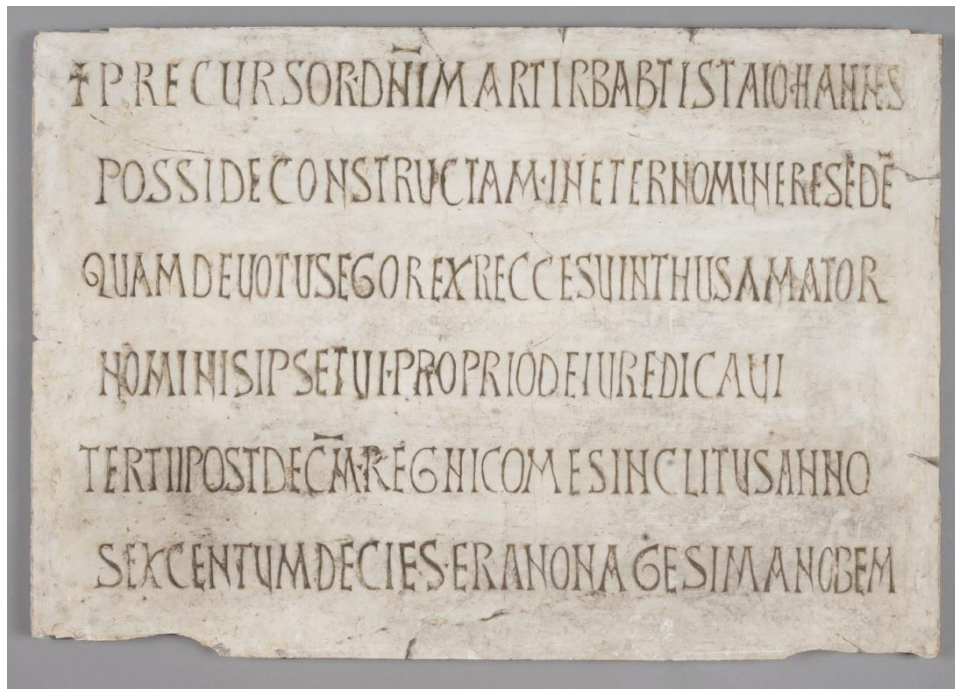 ✝PRECURSOR·DN̅IMARTIRBABTISTAIOHANNES
POSSIDECONSTRUCTAM·INETERNOMINERESEDE̅
QUAMDEUOTUSEGOREXRECCESUINTHUSAMATOR
NOMINISIPSETUI·PROPRIODEIUREDICAUI
TERTIIPOSTDEC̅M·REGNICOMESINCLITUSANNO
SEXCENTUMDECIES·ERANONAGESIMANOBEM